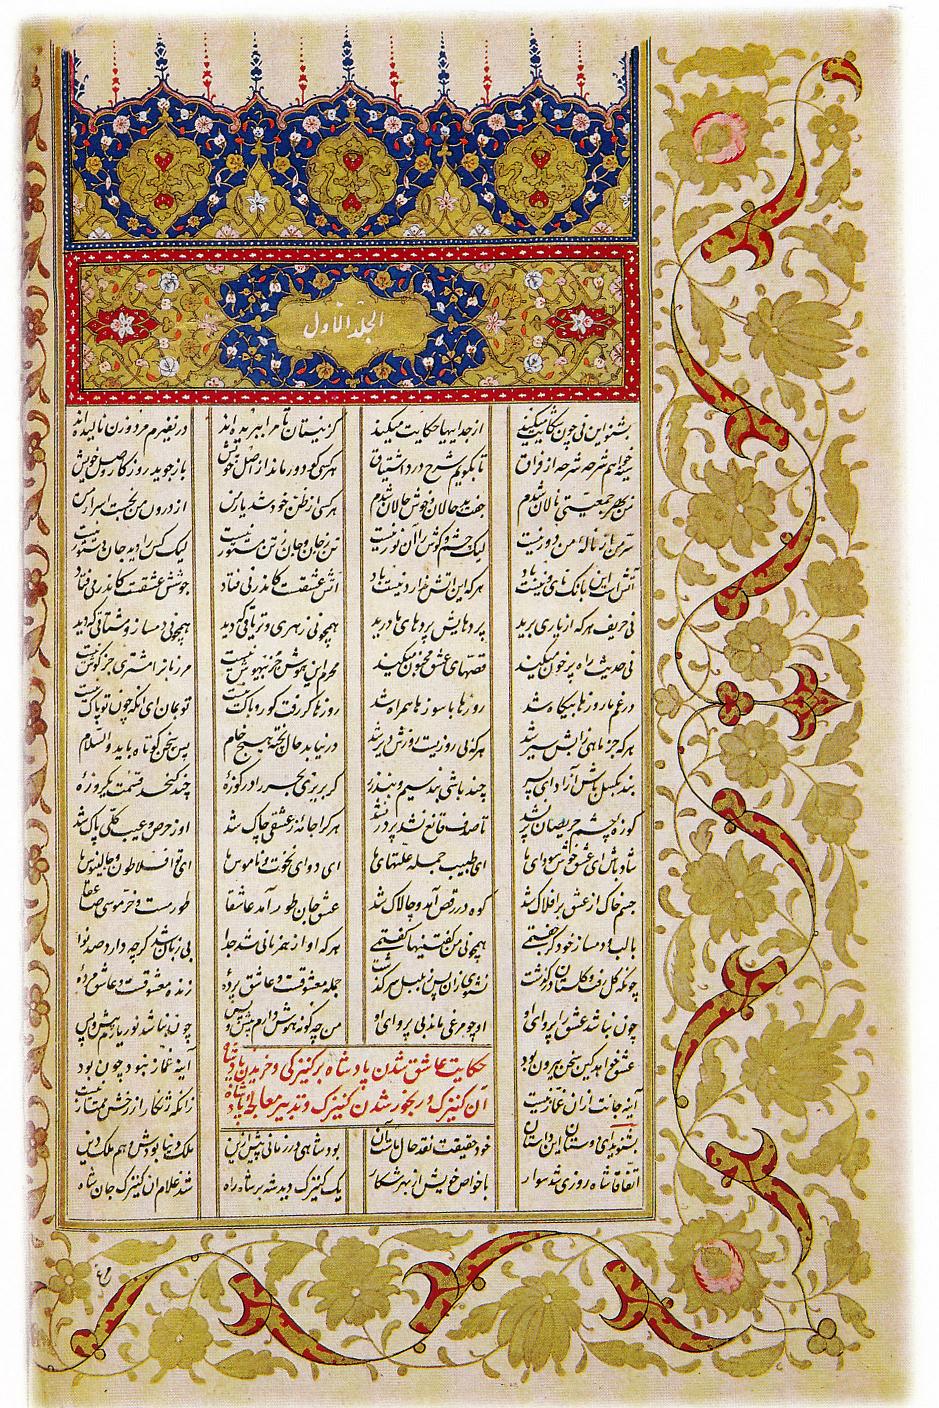 الجلد الاول
بشنو این نی چون شکایت میکند از جداییها حکایت میکند کز نیستان تا مرا ببریده اند در نفیرم مرد و زن نالیده اند
سینه خواهم شرحه شرحه از فراق تا بگویم شرح درد اشتیاق هر کسی کو دور ماند از اصل خویش باز جوید روزگار وصل خویش
من بهر جمعیتی نالان شدم جفت بدحالان و خوش حالان شدم هر کسی از ظن خود شد یار من از درون من نجست اسرار من
سر من از نالهٔ من دور نیست لیک چشم و گوش را آن نور نیست تن ز جان و جان ز تن مستور نیست لیک کس را دید جان دستور نیست
آتش است این بانگ نای و نیست باد هر که این آتش ندارد نیست باد آتش عشقست کاندر نی فتاد جوشش عشقست کاندر می فتاد
نی حریف هر که از یاری برید پردهایش پردهای ما درید همچو نی زهری و تریاقی که دید همچو نی دمساز و مشتاقی که دید
نی حدیث راه پر خون میکند قصهای عشق مجنون میکند محرم این هوش جز بیهوش نیست مر زبانرا مشتری جز گوش نیست
در غم ما روزها بیگاه شد روزها با سوزها همراه شد روزها گر رفت گو رو باک نیست تو بمان ای آنکه چون تو پاک نیست
هر که جز ماهی ز آبش سیر شد هر که بی روزیست روزش دیر شد در نیابد حال پخته هیچ خام پس سخن کوتاه باید والسلام
بند بگسل باش آزاد ای پسر چند باشی بند سیم و بند زر گر بریزی بحر را در کوزهٔ چند گنجد قسمت یکروزهٔ
کوزه چشم حریصان پر نشد تا صدف قانع نشد پر در نشد هر کرا جامه ز عشقی چاک شد او ز حرص و عیب کلی پاک شد
شاد باش ای عشق خوش سودای ما ای طبیب جمله علتهای ما ای دوای نخوت و ناموس ما ای تو افلاطون و جالینوس ما
جسم خاک از عشق بر افلاک شد کوه در رقص آمد و چالاک شد عشق جان طور آمد عاشقا طور مست و خر موسی صاعقا
با لب دمساز خود گر جفتمی همچو نی من گفتنیها گفتمی هر که او از همزبانی شد جدا بی زبان شد گرچه دارد صد نوا
چونکه گل رفت و گلستان درگذشت نشنوی زان پس ز بلبل سرگذشت جمله معشوقست و عاشق پردهٔ زنده معشوقست و عاشق مردهٔ
چون نباشد عشق را پروای او او چو مرغی ماند بی پر وای او من چه گونه هوش دارم پیش و پس چون نباشد نور یارم پیش و پس
عشق خواهد کین سخن بیرون بود آینه غماز نبود چون بود
آینه جانت ازان غماز نیست زانکه زنگار از رخش ممتاز نیست
حکایت عاشق شدن پادشاه بر کنیزکی و خریدن پادشاه
آن کنیزک و رنجور شدن کنیزک و تدبیر معالجه پادشاه
بشنوید ای دوستان این داستان خود حقیقت نقد حال ماست آن بود شاهی در زمانی پیش ازین ملک دنیا بودش و هم ملک دین
اتفاقا شاه روزی شد سوار با خواص خویش از بهر شکار یک کنیزک دید شه بر شاه راه شد غلام آن کنیزک جان شاه